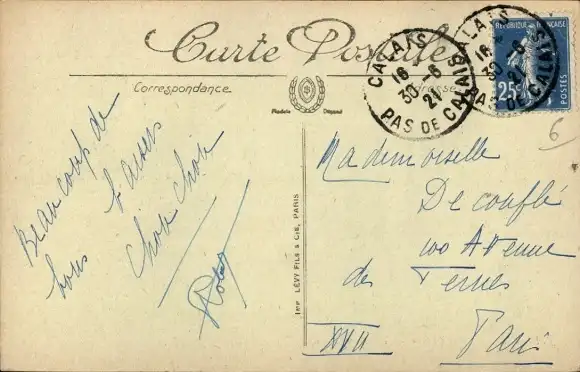 Carte Postale
Correspondance
Adresse
Modèle Déposé
CALAIS
16
30 - 6
21
PAS DE CALAIS
CALAIS
16
30 - 6
21
PAS DE CALAIS
RÉPUBLIQUE FRANÇAISE
25c
POSTES
6
Beaucoup de
bons baisers
Chou Chou
IMP. LÉVY FILS & CIE, PARIS
Mademoiselle
De conflé
100 Avenue
des Ternes
XVII Paris